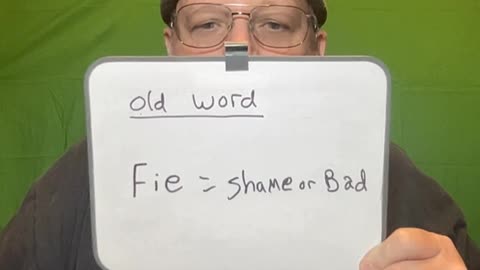 old word
Fie = shame or Bad